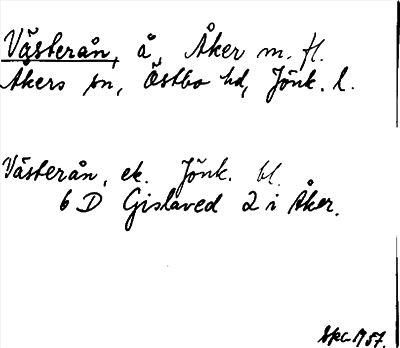 Västerån, å, Åker m. fl.
Åkers sn, Östbo hd, Jönk. l.
Västerån, ek. Jönk. bl.
6 D Gislaved 2 i Åker.